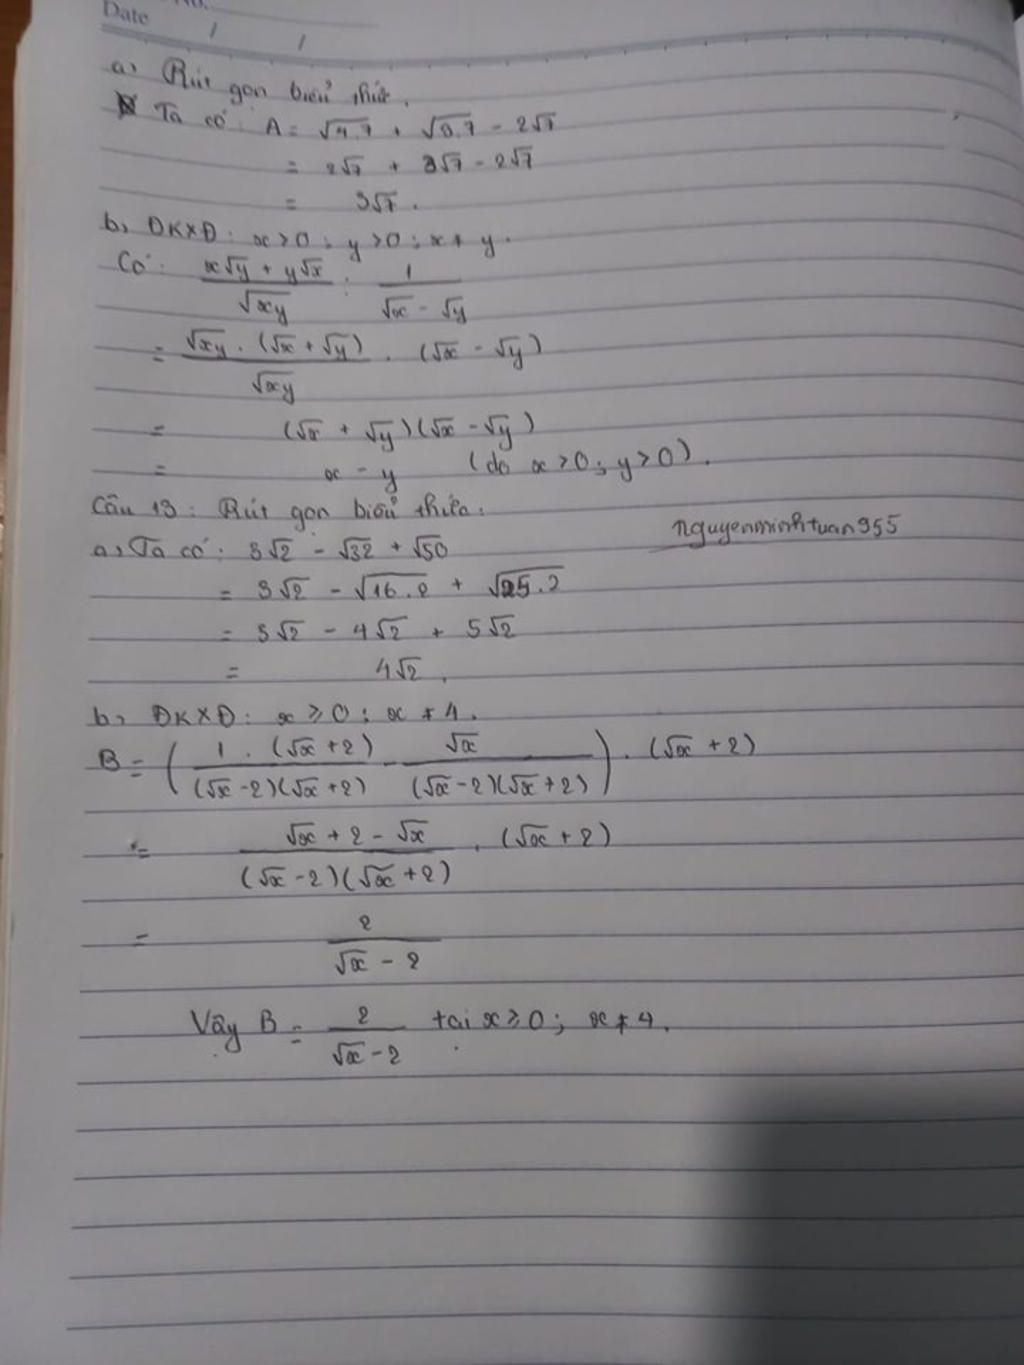 No.
Date / /
a, Rút gọn biểu thức.
Ta có: A = √4.7 + √9.7 - 2√7
= 2√7 + 3√7 - 2√7
= 3√7.
b, ĐKXĐ: x > 0; y > 0; x ≠ y.
Có: (x√y + y√x)/√xy : 1/(√x - √y)
= (√xy . (√x + √y))/√xy . (√x - √y)
= (√x + √y)(√x - √y)
= x - y (do x > 0; y > 0).
Câu 13: Rút gọn biểu thức:
nguyenminhtuan955
a, Ta có: 3√2 - √32 + √50
= 3√2 - √16.2 + √25.2
= 3√2 - 4√2 + 5√2
= 4√2.
b, ĐKXĐ: x ≥ 0; x ≠ 4.
B = ( (1 . (√x + 2))/((√x - 2)(√x + 2)) - √x/((√x - 2)(√x + 2)) ) . (√x + 2)
= (√x + 2 - √x)/((√x - 2)(√x + 2)) . (√x + 2)
= 2/(√x - 2)
Vậy B = 2/(√x - 2) tại x ≥ 0; x ≠ 4.